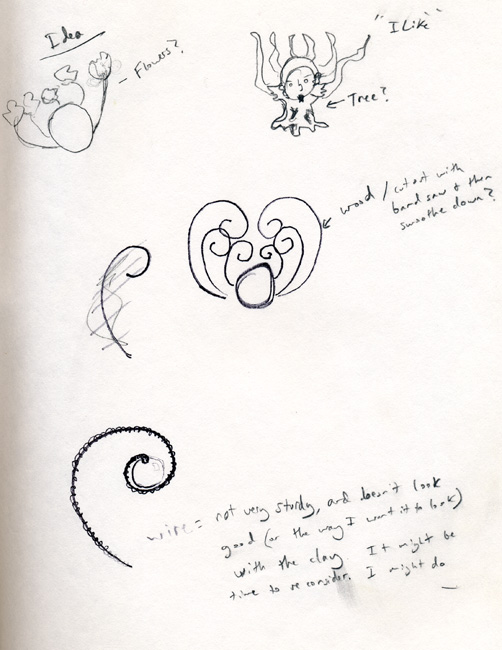 Idea
Flowers?
"I Like"
Tree?
wood / cut out with
band saw & then
smoothe down?
wire = not very sturdy, and doesn't look
good (or the way I want it to look)
with the clay. It might be
time to reconsider. I might do